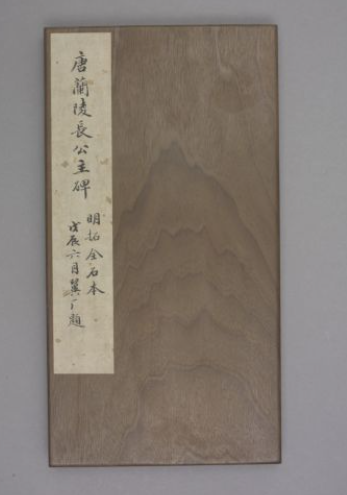 唐蘭陵長公主碑
明拓全石本
戊辰六月冀丁題